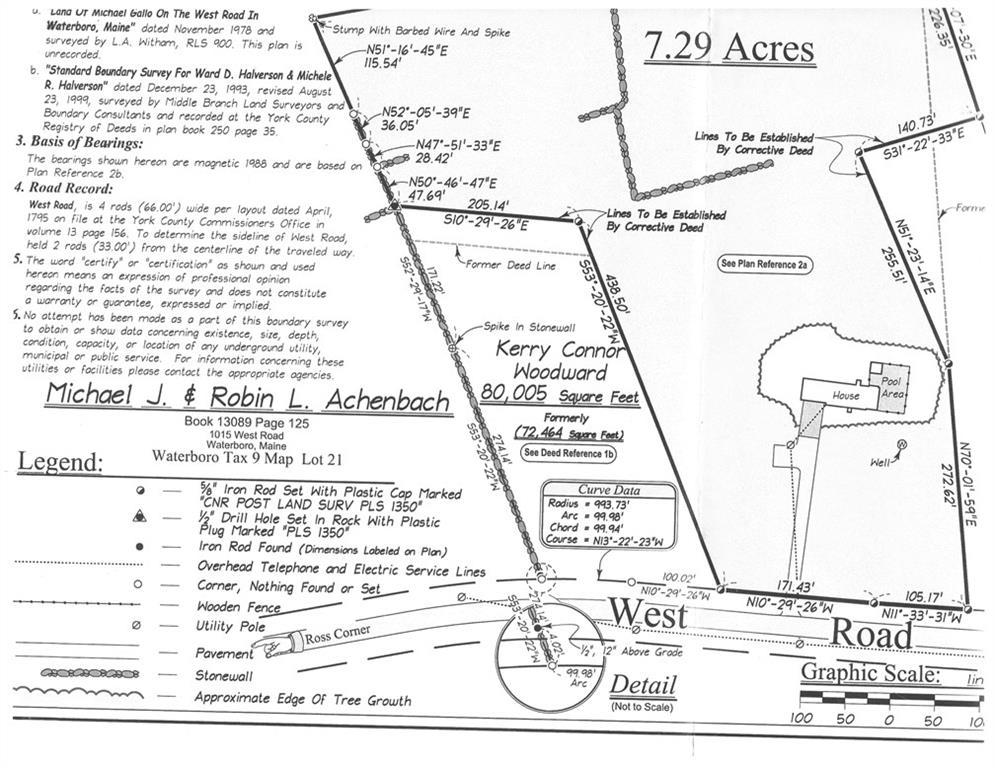 a. "Land Of Michael Gallo On The West Road In
Waterboro, Maine" dated November 1978 and
surveyed by L.A. Witham, RLS 900. This plan is
unrecorded.
b. "Standard Boundary Survey For Ward D. Halverson & Michele
R. Halverson" dated December 23, 1993, revised August
23, 1999, surveyed by Middle Branch Land Surveyors and
Boundary Consultants and recorded at the York County
Registry of Deeds in plan book 250 page 35.
3. Basis of Bearings:
The bearings shown hereon are magnetic 1988 and are based on
Plan Reference 2b.
4. Road Record:
West Road, is 4 rods (66.00') wide per layout dated April,
1795 on file at the York County Commissioners Office in
volume 13 page 156. To determine the sideline of West Road,
held 2 rods (33.00') from the centerline of the traveled way.
5. The word "certify" or "certification" as shown and used
hereon means an expression of professional opinion
regarding the facts of the survey and does not constitute
a warranty or guarantee, expressed or implied.
5. No attempt has been made as a part of this boundary survey
to obtain or show data concerning existence, size, depth,
condition, capacity, or location of any underground utility,
municipal or public service. For information concerning these
utilities or facilities please contact the appropriate agencies.
Michael J. & Robin L. Achenbach
Book 13089 Page 125
1015 West Road
Waterboro, Maine
Waterboro Tax 9 Map Lot 21
Legend:
5/8" Iron Rod Set With Plastic Cap Marked
"CNR POST LAND SURV PLS 1350"
1/2" Drill Hole Set In Rock With Plastic
Plug Marked "PLS 1350"
Iron Rod Found (Dimensions Labeled on Plan)
Overhead Telephone and Electric Service Lines
Corner, Nothing Found or Set
Wooden Fence
Utility Pole
Pavement
Stonewall
Approximate Edge Of Tree Growth
Ross Corner
Stump With Barbed Wire And Spike
N51°-16'-45"E
115.54'
N52°-05'-39"E
36.05'
N47°-51'-33"E
28.42'
N50°-46'-47"E
47.69'
205.14'
S10°-29'-26"E
Lines To Be Established
By Corrective Deed
Former Deed Line
171.22'
S52°-29'-17"W
Spike In Stonewall
S53°-20'-22"W
438.50'
Kerry Connor
Woodward
80,005 Square Feet
Formerly
(72,464 Square Feet)
See Deed Reference 1b
274.14'
S53°-20'-22"W
Curve Data
Radius = 993.73'
Arc = 99.98'
Chord = 99.94'
Course = N13°-22'-23"W
7.29 Acres
226.35'
07'-30"E
140.73'
S31°-22'-33"E
Lines To Be Established
By Corrective Deed
N51°-23'-14"E
255.51'
Forme
See Plan Reference 2a
House
Pool
Area
Well
N70°-01'-59"E
272.62'
100.02'
N10°-29'-26"W
171.43'
N10°-29'-26"W
105.17'
N11°-33'-31"W
West Road
274.14'
S53°-20'-22"W
4.02'
1/2", 12" Above Grade
99.98'
Arc
Detail
(Not to Scale)
Graphic Scale:
1in
100 50 0 50 10